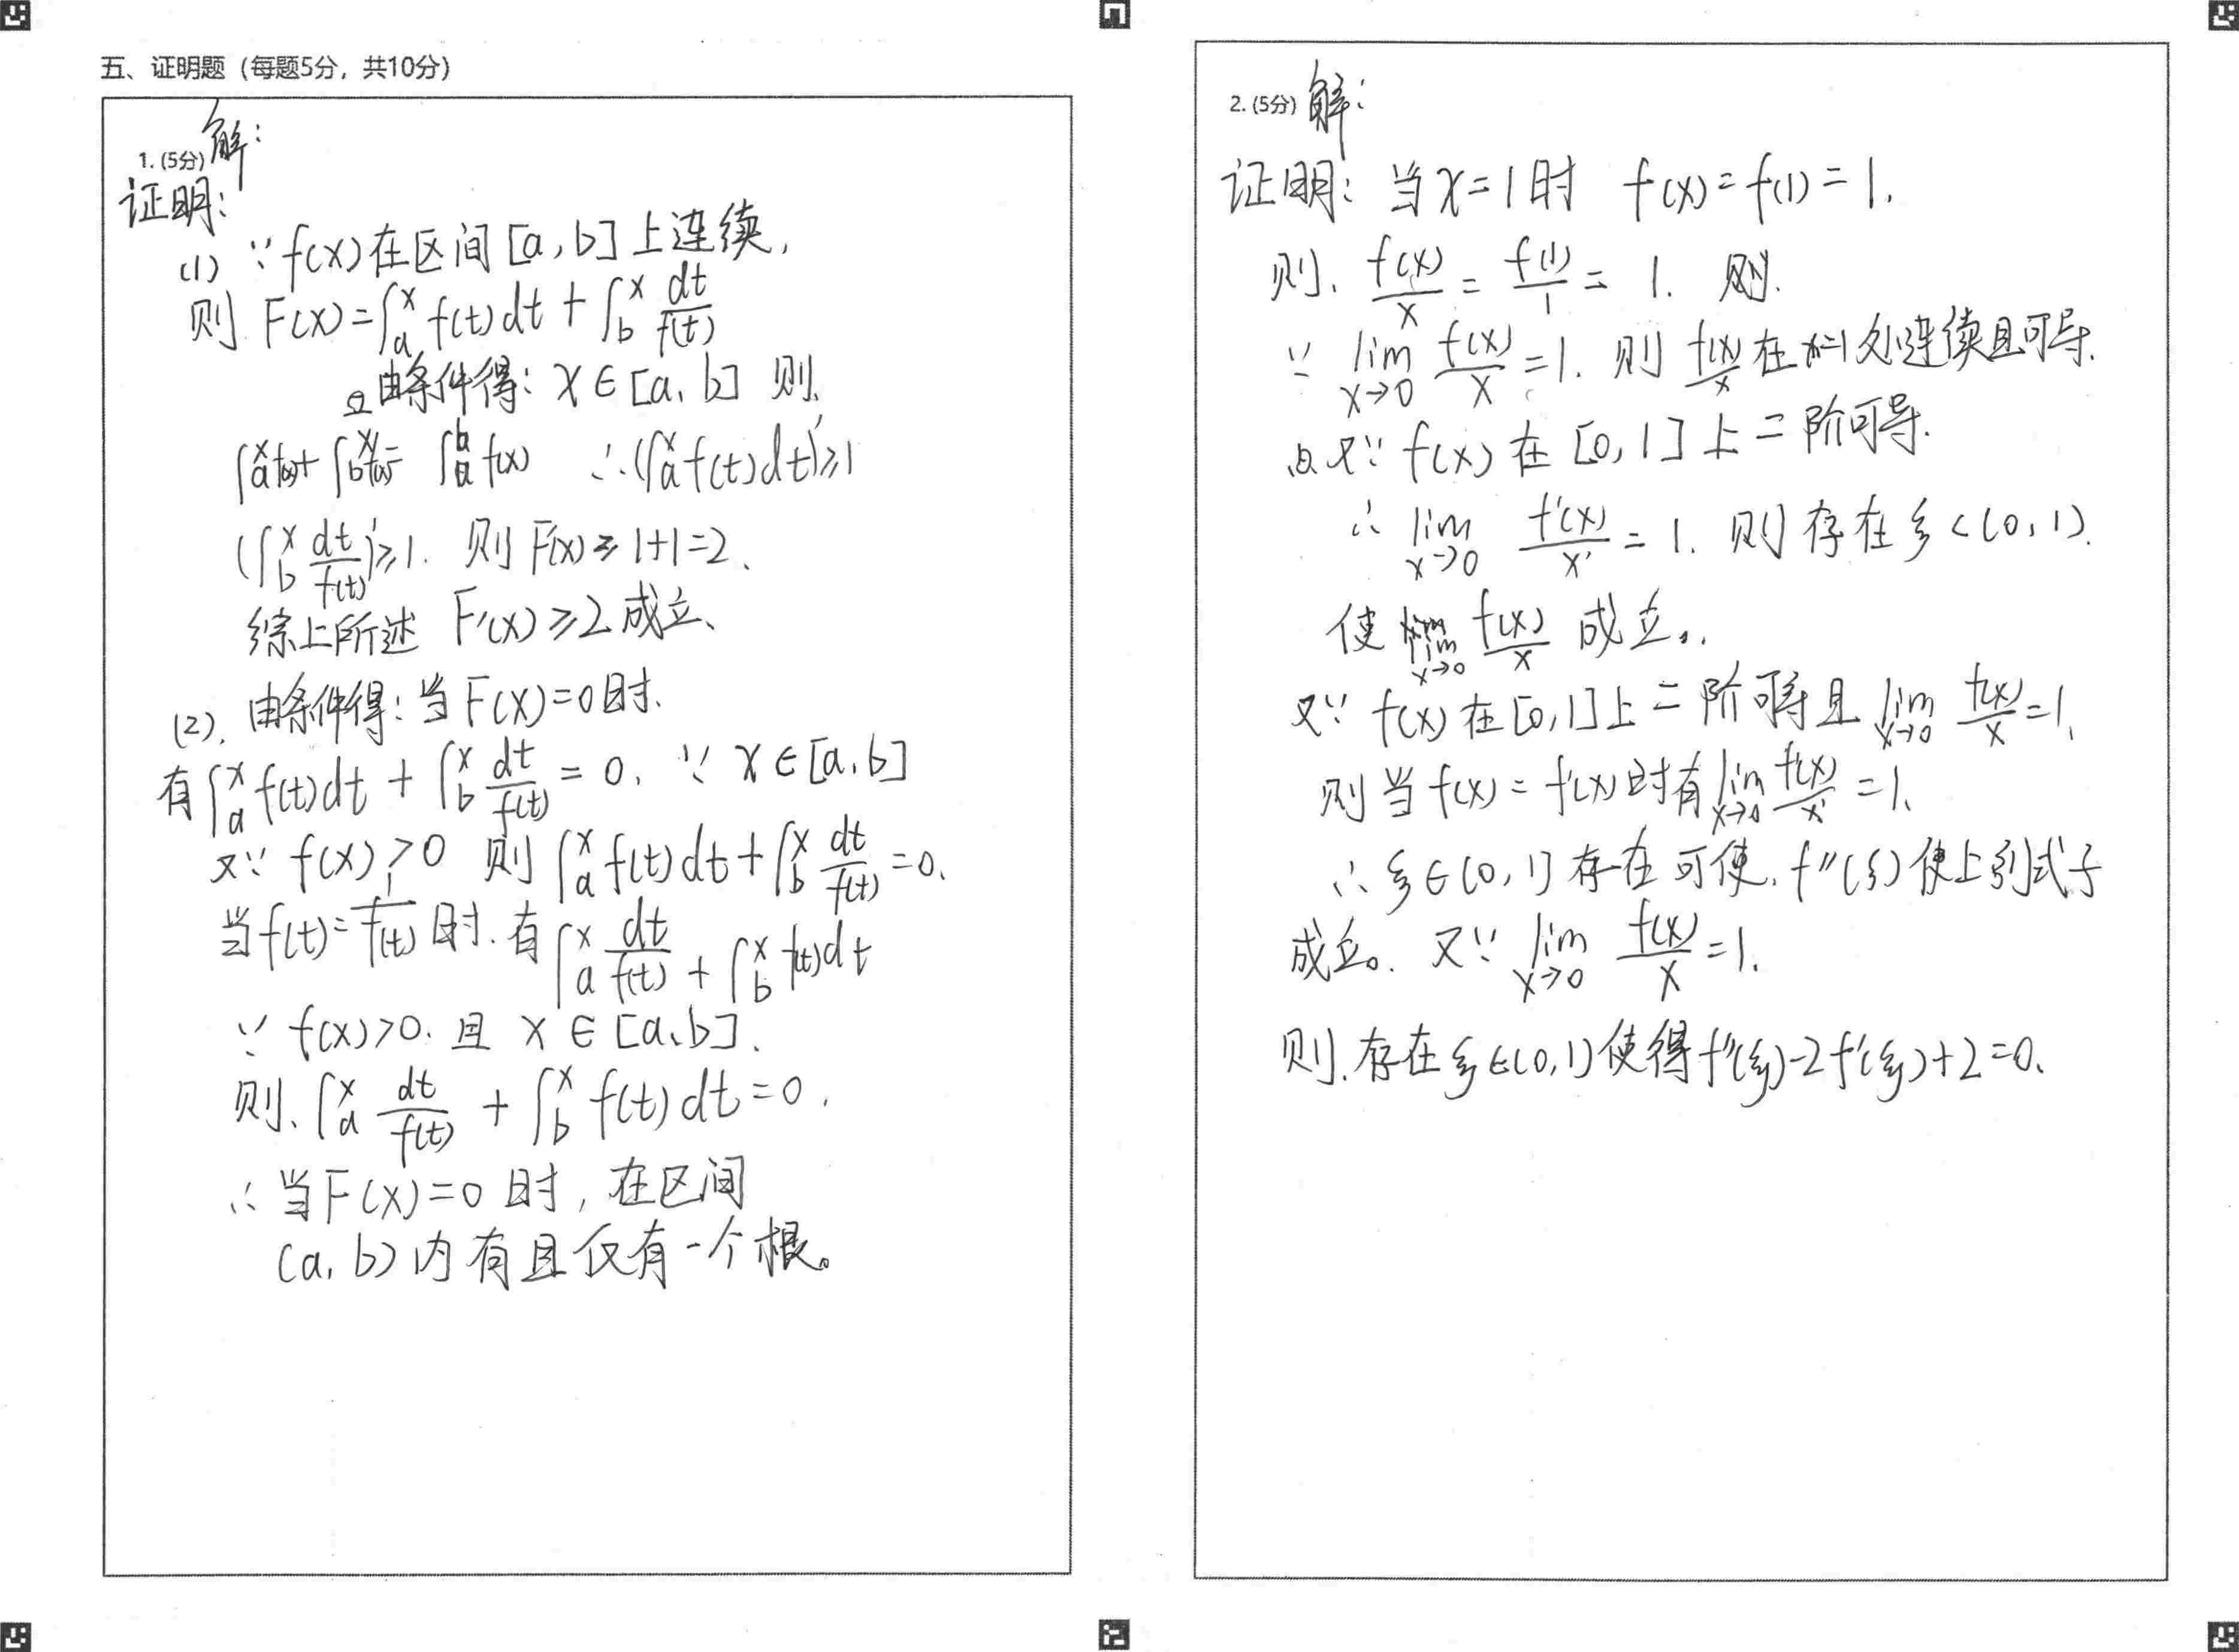 五、证明题（每题5分，共10分）
1. (5分) 解：
证明：
(1) ∵ f(x)在区间[a, b]上连续，
则 F(x)=∫_a^x f(t)dt + ∫_b^x dt/f(t)
由条件得：x∈[a, b] 则.
∴(∫_a^x f(t)dt)'≥1
(∫_b^x dt/f(t))'≥1. 则 F'(x)≥1+1=2、
综上所述 F'(x)≥2成立、
(2). 由条件得：当F(x)=0时.
有∫_a^x f(t)dt + ∫_b^x dt/f(t) = 0. ∵ x∈[a, b]
又∵ f(x)>0 则 ∫_a^x f(t)dt+∫_b^x dt/f(t)=0.
当f(t)=1/f(t)时. 有∫_a^x dt/f(t) + ∫_b^x f(t)dt
∵ f(x)>0. 且 x∈[a, b].
则、∫_a^x dt/f(t) + ∫_b^x f(t)dt=0.
∴ 当F(x)=0时，在区间
(a, b)内有且仅有一个根。
2. (5分) 解：
证明：当x=1时 f(x)=f(1)=1.
则. f(x)/x = f(1)/1 = 1. 则.
∵ lim_{x→0} f(x)/x=1. 则 f(x)/x 在x=1处连续且可导.
又∵ f(x)在[0, 1]上二阶可导.
∴ lim_{x→0} f'(x)/x' = 1. 则存在ξ<(0, 1).
使 lim_{x→0} f(x)/x 成立。.
又∵ f(x)在[0, 1]上二阶可导且 lim_{x→0} f(x)/x=1.
则当f(x)=f'(x)时有 lim_{x→0} f(x)/x' =1.
∴ ξ∈(0, 1)存在可使. f''(ξ)使上列式子
成立。. 又∵ lim_{x→0} f(x)/x=1.
则.存在ξ∈(0, 1)使得f''(ξ)-2f'(ξ)+2=0.